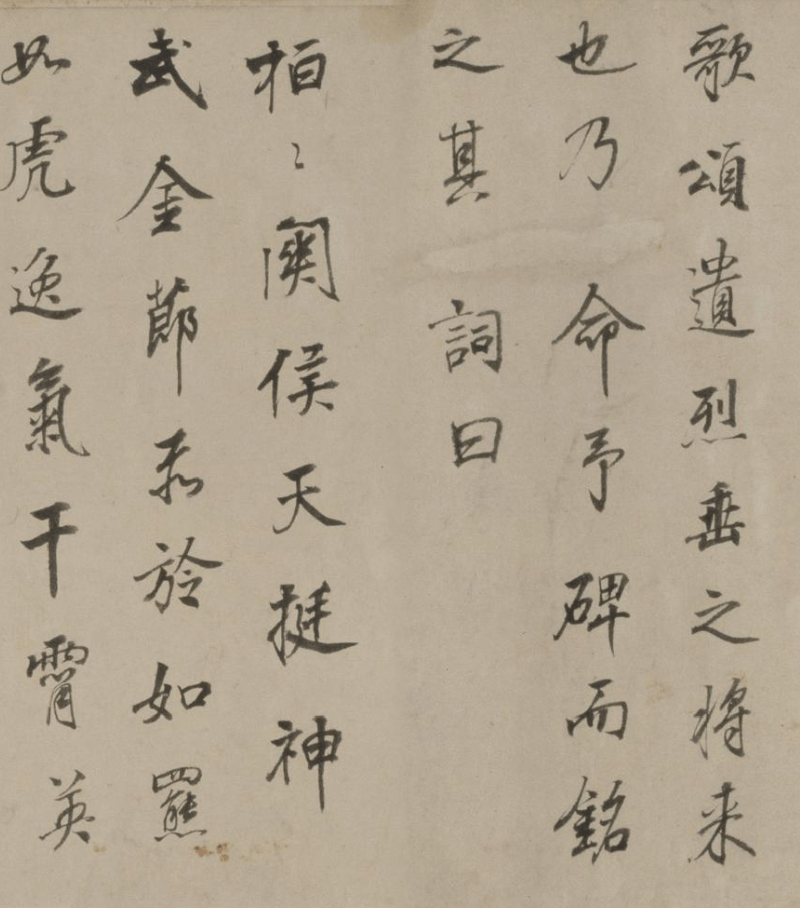 歌頌遺烈垂之将来
也乃命予碑而銘
之其詞曰
桓〻關侯天挺神
武金節旍如羆
如虎逸氣干霄英